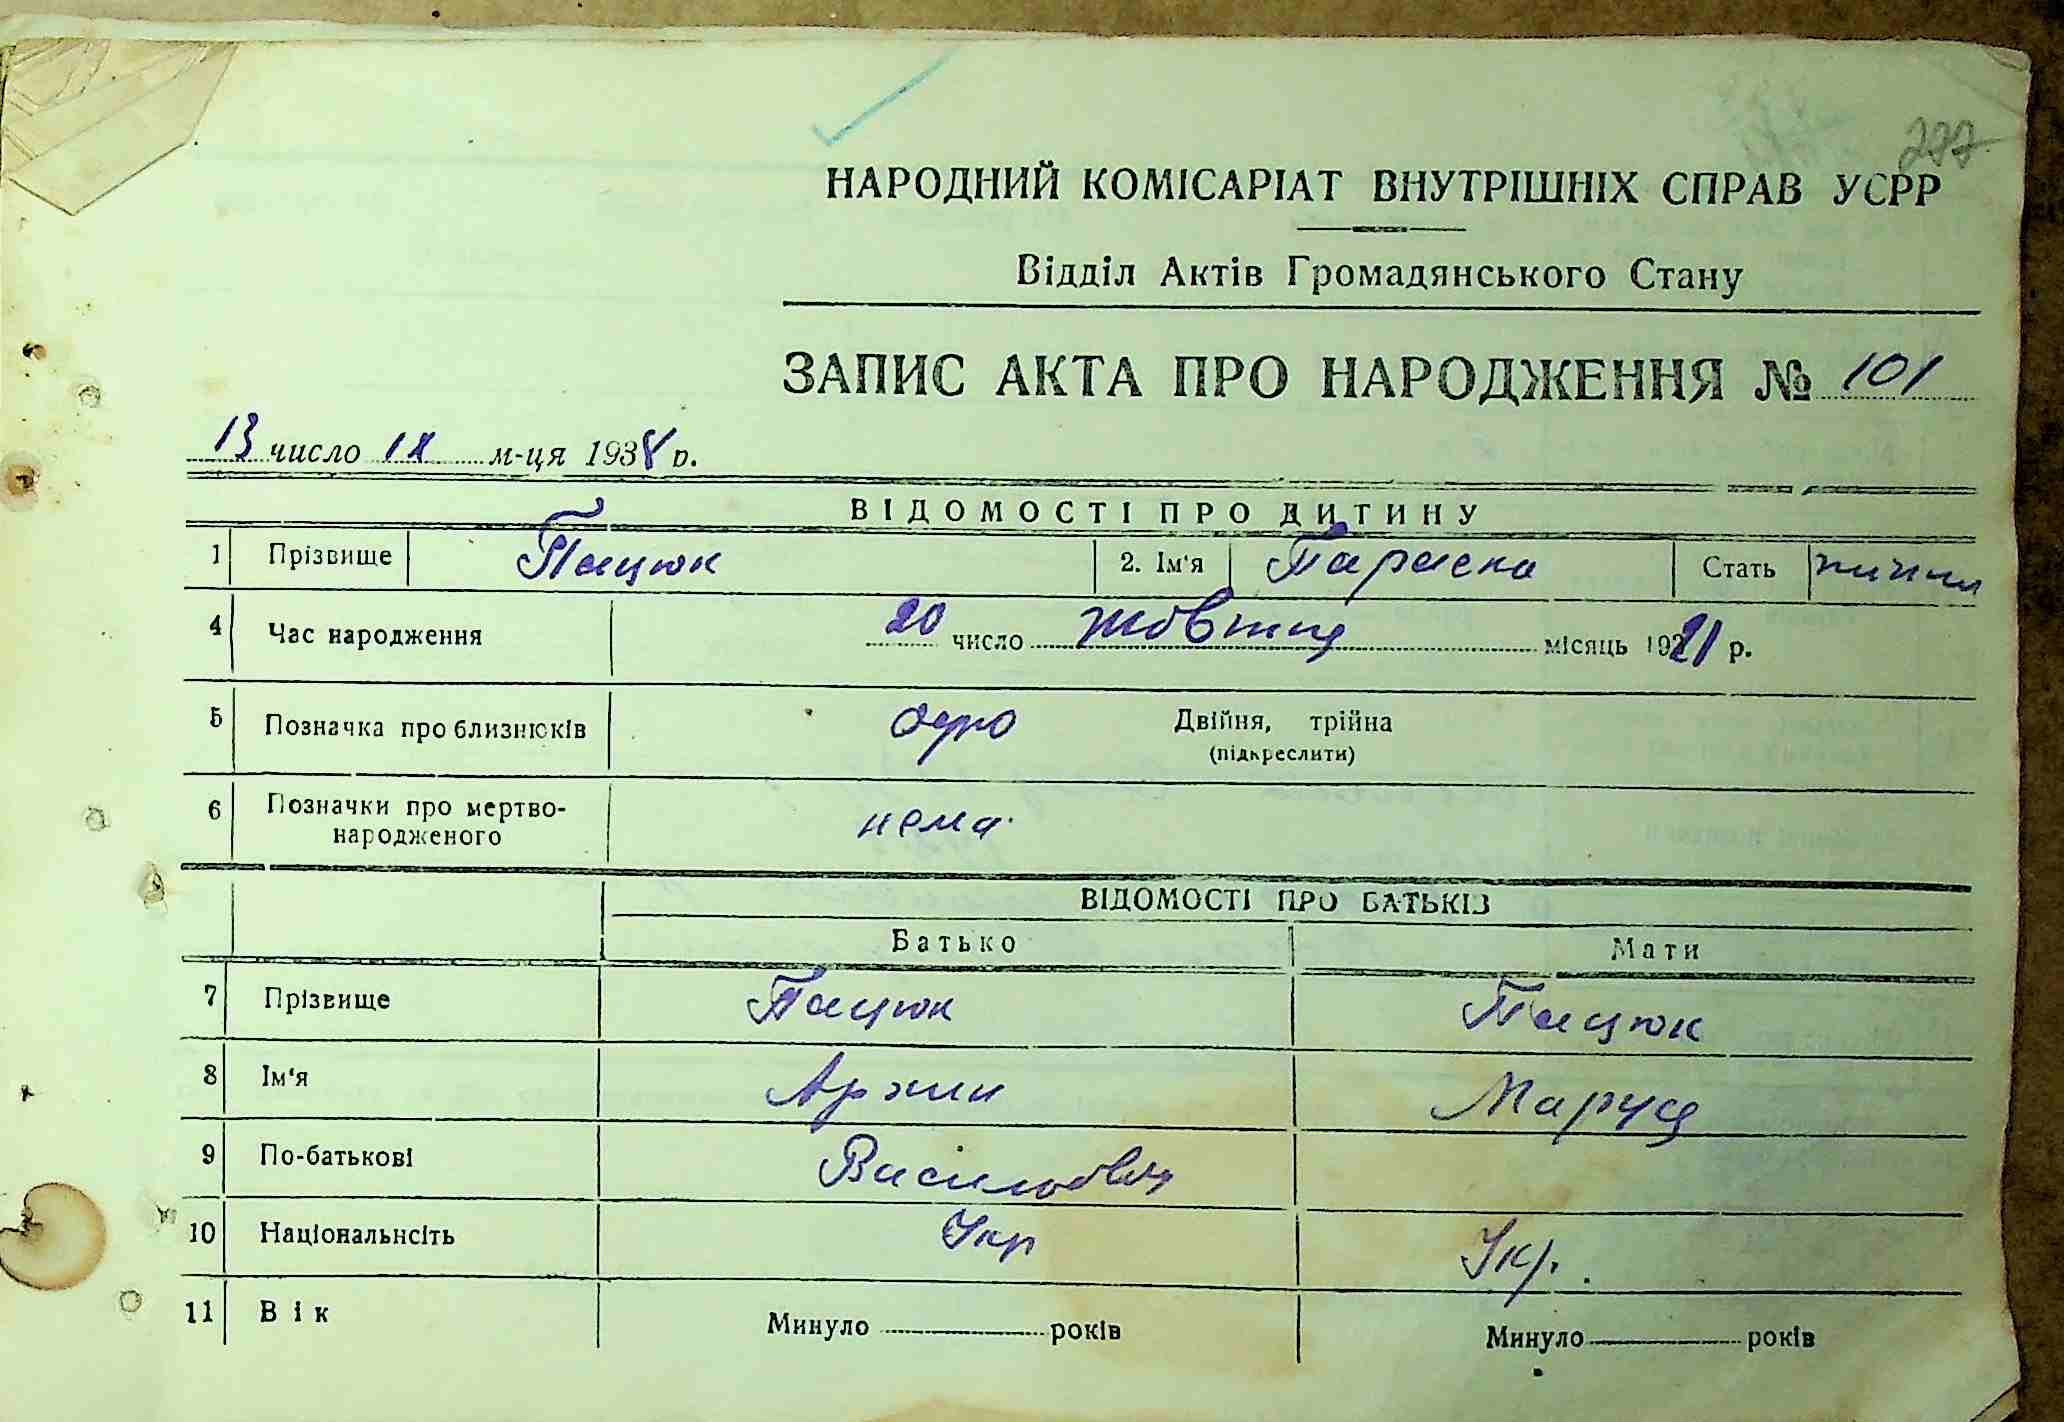 277
НАРОДНИЙ КОМІСАРІАТ ВНУТРІШНІХ СПРАВ УСРР
Відділ Актів Громадянського Стану
ЗАПИС АКТА ПРО НАРОДЖЕННЯ № 101
13 число ІХ м-ця 1938 р.
ВІДОМОСТІ ПРО ДИТИНУ
1 Прізвище Пацюк 2. Ім'я Параска Стать
4 Час народження 20 число жовтня місяць 1921 р.
5 Позначка про близнюків одно Двійня, трійна
(підкреслити)
6 Позначки про мертво-
народженого нема
ВІДОМОСТІ ПРО БАТЬКІВ
Батько Мати
7 Прізвище Пацюк Пацюк
8 Ім'я Маруся
9 По-батькові Васильович
10 Національнсіть Укр Укр.
11 Вік Минуло років Минуло років